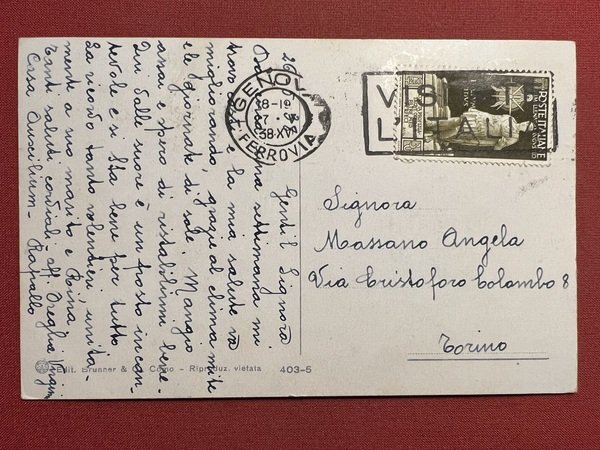 26
Gentil Signora,
una settimana mi
trovo e la mia salute va
migliorando, grazie al clima mite
e le giornate di sole. Mangio
assai e spero di ristabilirmi bene.
Qui dalle suore è un posto incan-
tevole e si sta bene per tutto.
La ricordo tanto volentieri, unita-
mente a suo marito e
Tanti saluti cordiali, aff. Oreglia
Casa Auxilium - Rapallo
GENOVA
18-19
7
38 XVI
FERROVIA
VISITATE
L'ITALIA
POSTE ITALIANE
Signora
Massano Angela
Via Cristoforo Colombo 8
Torino
Edit. Brunner & Como - Riproduz. vietata 403-5